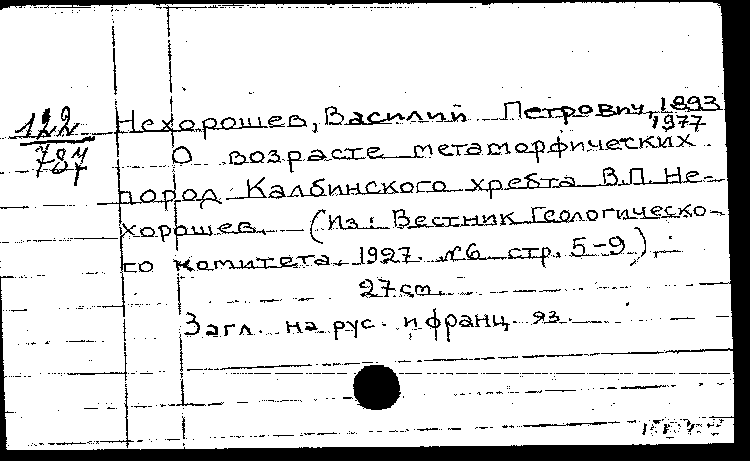 122
787
Нехорошев, Василий Петрович, 1893
1977
О возрасте метаморфических
пород Калбинского хребта В.П. Не-
хорошев. (Из: Вестник Геологическо-
го комитета. 1927. №6 стр. 5-9).
27 cm.
Загл. на рус. и франц. яз.